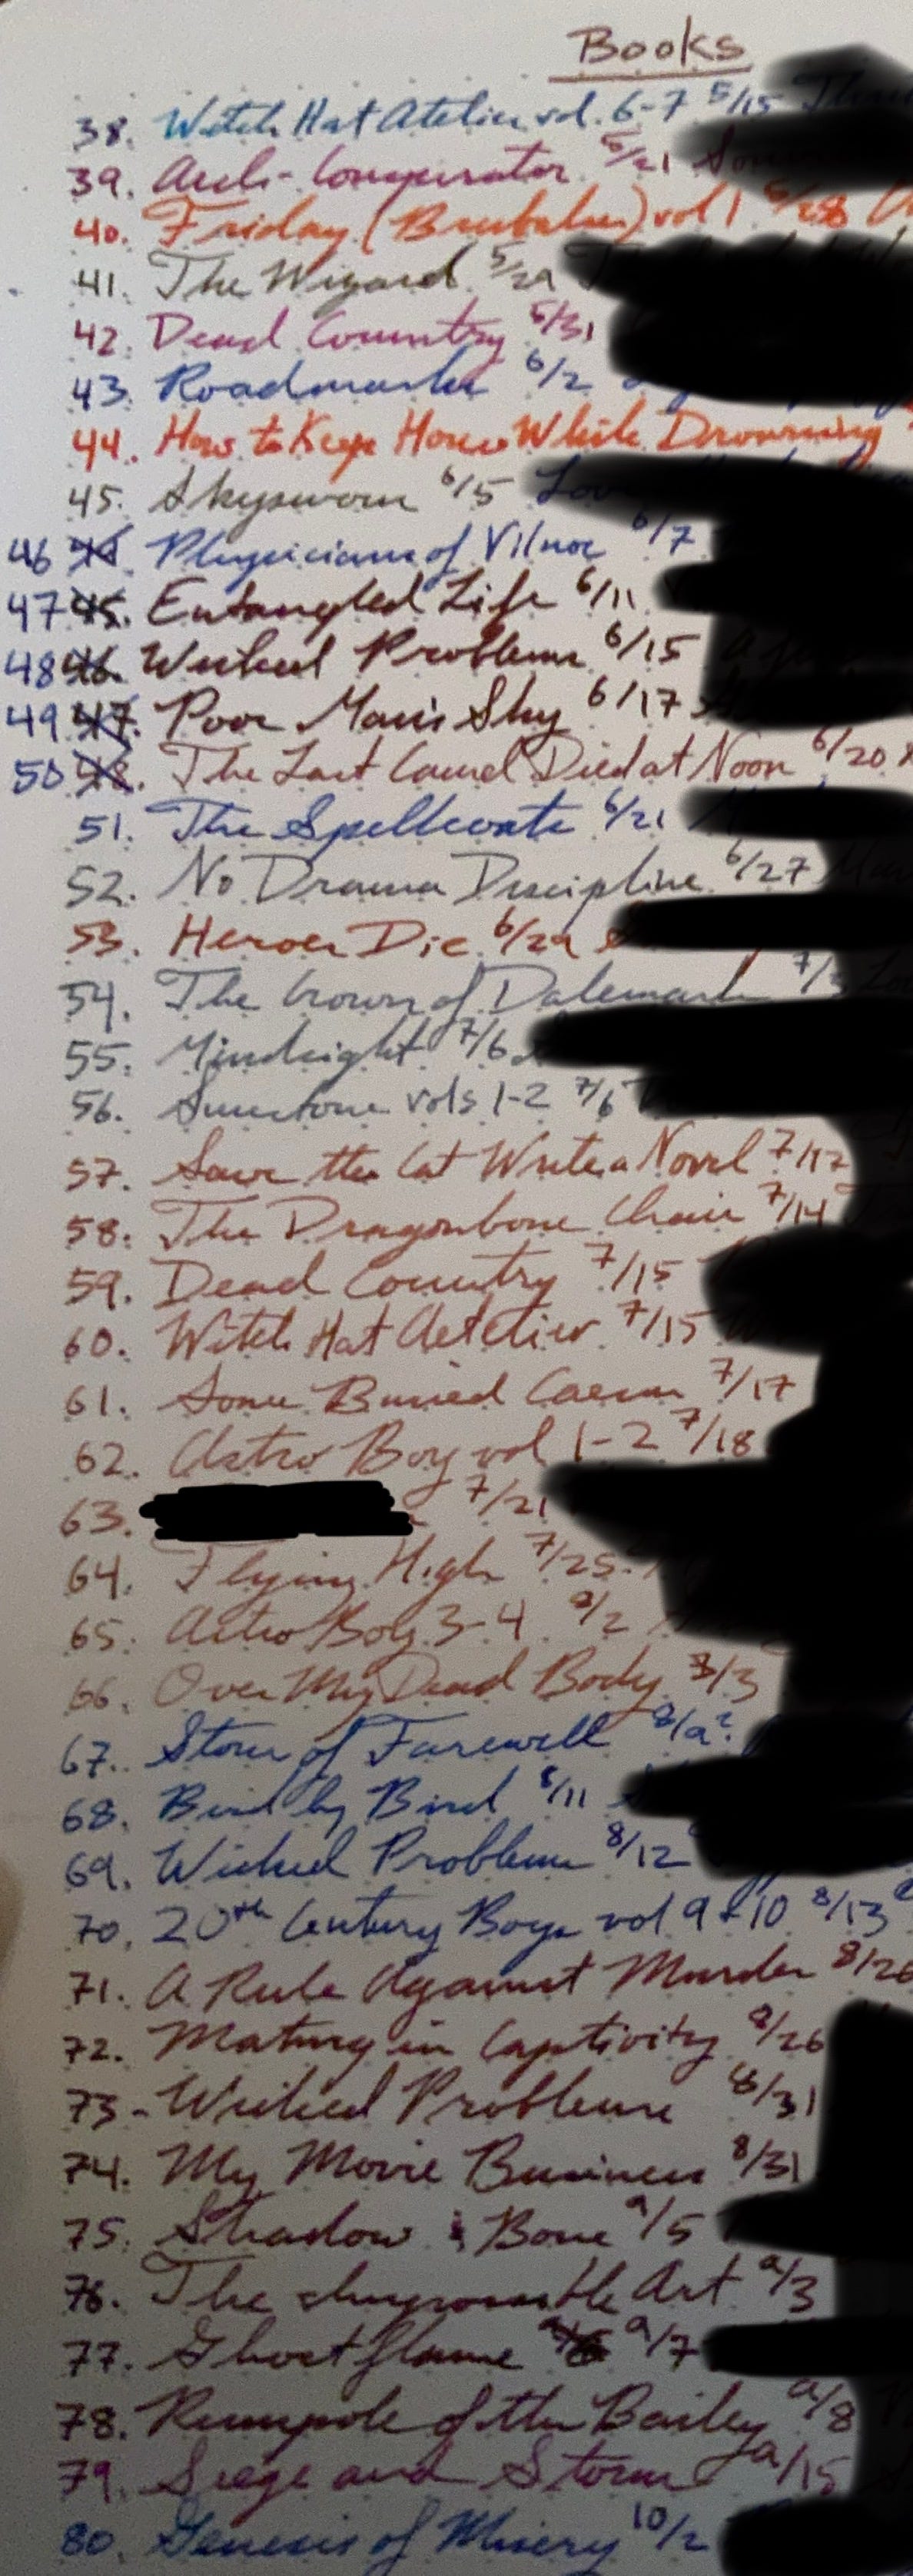 Books
38. Witch Hat Atelier vol. 6-7 5/15
39. Arch-Conspirator 5/21
40. Friday (Brubaker) vol 1 5/28
41. The Wizard 5/29
42. Dead Country 5/31
43. Roadmarks 6/2
44. How to Keep House While Drowning
45. Skysworn 6/5
46 Physicians of Vilnoc 6/7
47 45. Entangled Life 6/11
48 46. Wicked Problems 6/15
49 47. Poor Man's Sky 6/17
50 48. The Last Camel Died at Noon 6/20
51. The Spellcoats 6/21
52. No Drama Discipline 6/27
53. Heroes Die 6/29
54. The Crown of Dalemark 7/
55. Mindsight 7/6
56. Sunstone vols 1-2 7/6
57. Save the Cat Write a Novel 7/12
58. The Dragonbone Chair 7/14
59. Dead Country 7/15
60. Witch Hat Aetelier 7/15
61. Some Buried Caesar 7/17
62. Astro Boy vol 1-2 7/18
63. 7/21
64. Flying High 7/25
65. Astro Boy 3-4 8/2
66. Over My Dead Body 8/3
67. Stone of Farewell 8/9?
68. Bird by Bird 8/11
69. Wicked Problems 8/12
70. 20th Century Boys vol 9+10 8/13
71. A Rule Against Murder 8/26
72. Mating in Captivity 8/26
73- Wicked Problems 8/31
74. My Movie Business 8/31
75. Shadow & Bone 9/5
76. The Art 9/3
77. Ghostflame 9/7
78. Rumpole of the Bailey 9/8
79. Siege and Storm 9/15
80. Genesis of Misery 10/2